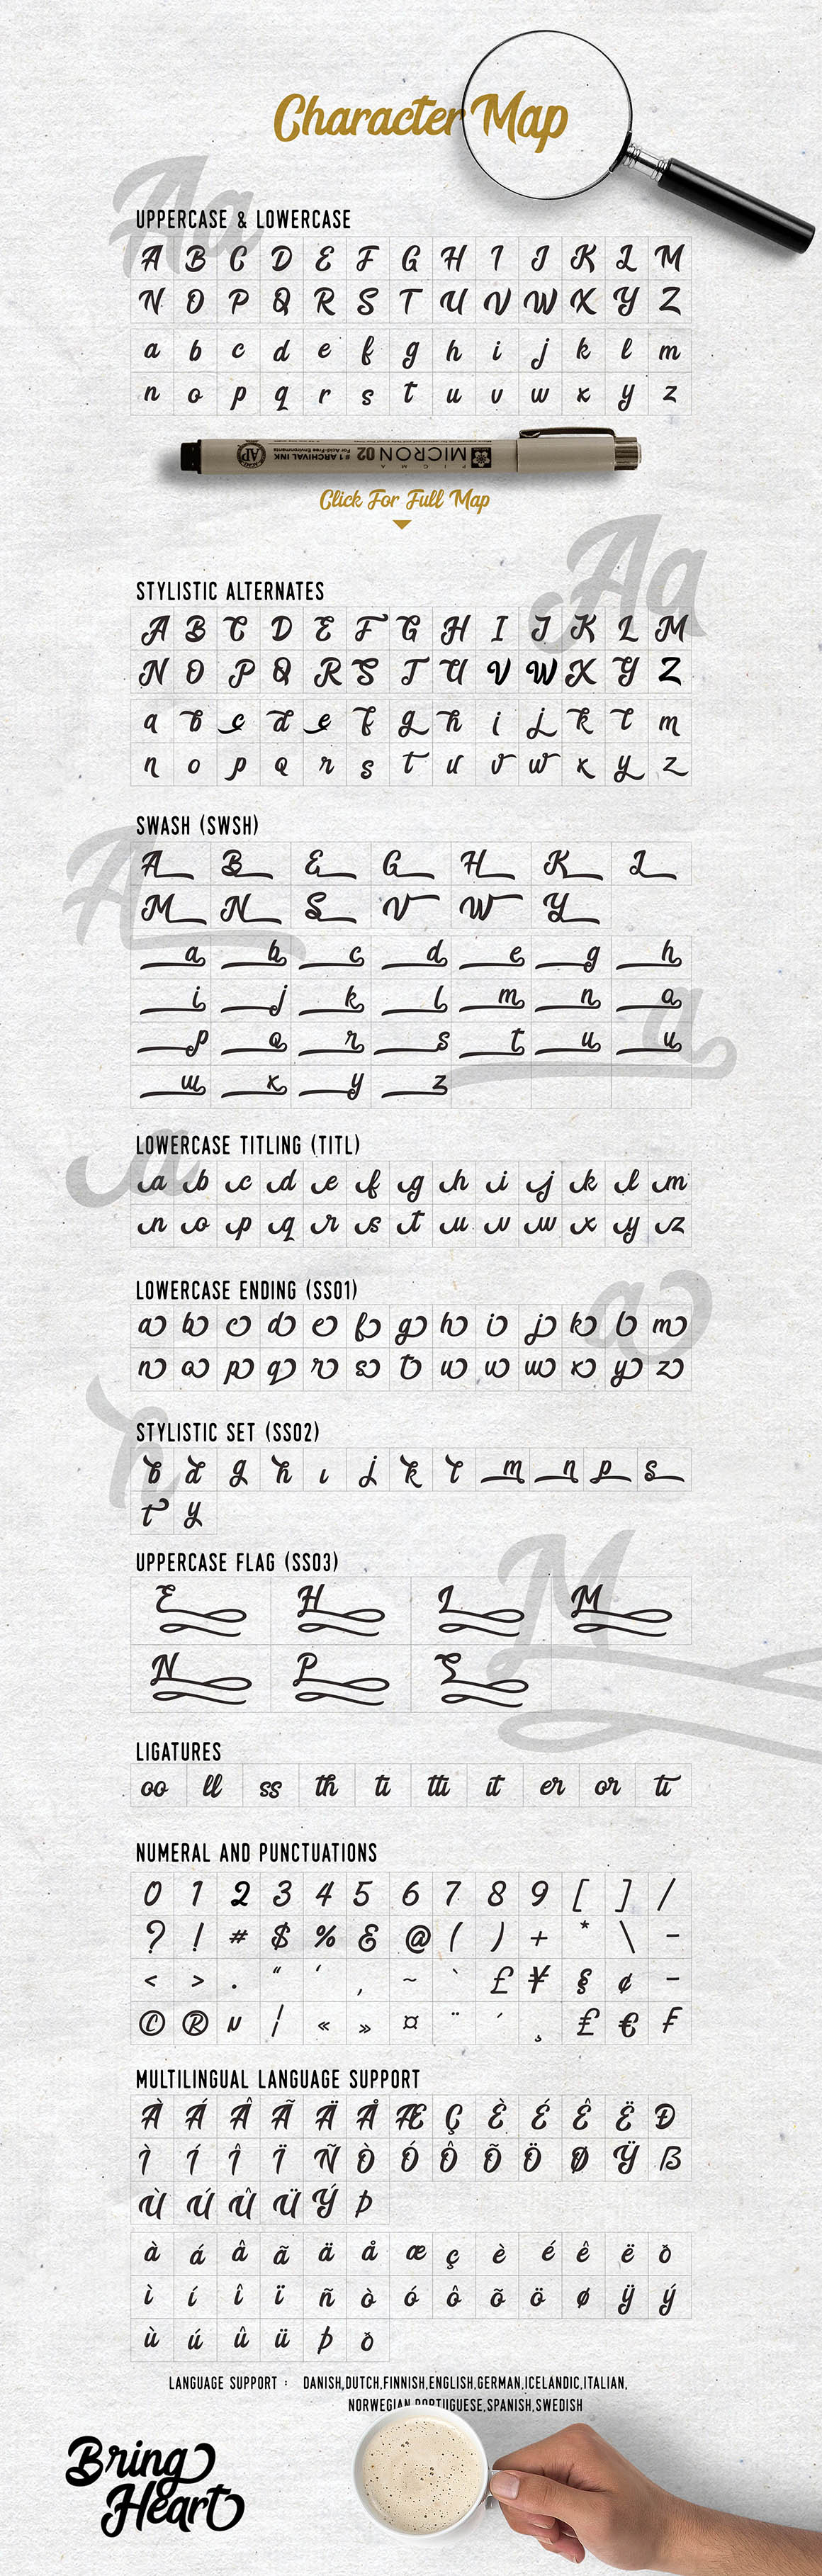 Character Map
Aa
UPPERCASE & LOWERCASE
A B C D E F G H I J K L M
N O P Q R S T U V W X Y Z
a b c d e f g h i j k l m
n o p q r s t u v w x y z
PIGMA
MICRON 02
#1 ARCHIVAL INK
For Acid-Free Environments
AP
Click For Full Map
Aa
STYLISTIC ALTERNATES
A B C D E F G H I J K L M
N O P Q R S T U V W X Y Z
a b c d e f g h i j k l m
n o p q r s t u v w x y z
SWASH (SWSH)
A
A B E G H K L
M N S V W Y
a b c d e g h
i j k l m n o
a
p q r s t u u
w x y z
LOWERCASE TITLING (TITL)
a
a b c d e f g h i j k l m
n o p q r s t u v w x y z
LOWERCASE ENDING (SS01)
a
a b c d e f g h i j k l m
n o p q r s t u v w x y z
STYLISTIC SET (SS02)
h
b d g h ı j k l m n p s
t y
UPPERCASE FLAG (SS03)
M
E H L M
N P S
LIGATURES
oo ll ss th ti tti it er or ti
NUMERAL AND PUNCTUATIONS
0 1 2 3 4 5 6 7 8 9 [ ] /
? ! # $ % & @ ( ) + * \ -
< > . “ ‘ , ~ ` £ ¥ § ¢ -
© ® ¦ « » ¤ ¨ ´ ¸ £ € F
MULTILINGUAL LANGUAGE SUPPORT
À Á Â Ã Ä Å Æ Ç È É Ê Ë Ð
Ì Í Î Ï Ñ Ò Ó Ô Õ Ö Ø Ÿ ß
Ù Ú Û Ü Ý Þ
à á â ã ä å æ ç è é ê ë ð
ì í î ï ñ ò ó ô õ ö ø ÿ ý
ù ú û ü þ ð
LANGUAGE SUPPORT : DANISH,DUTCH,FINNISH,ENGLISH,GERMAN,ICELANDIC,ITALIAN,
NORWEGIAN,PORTUGUESE,SPANISH,SWEDISH
Bring
Heart